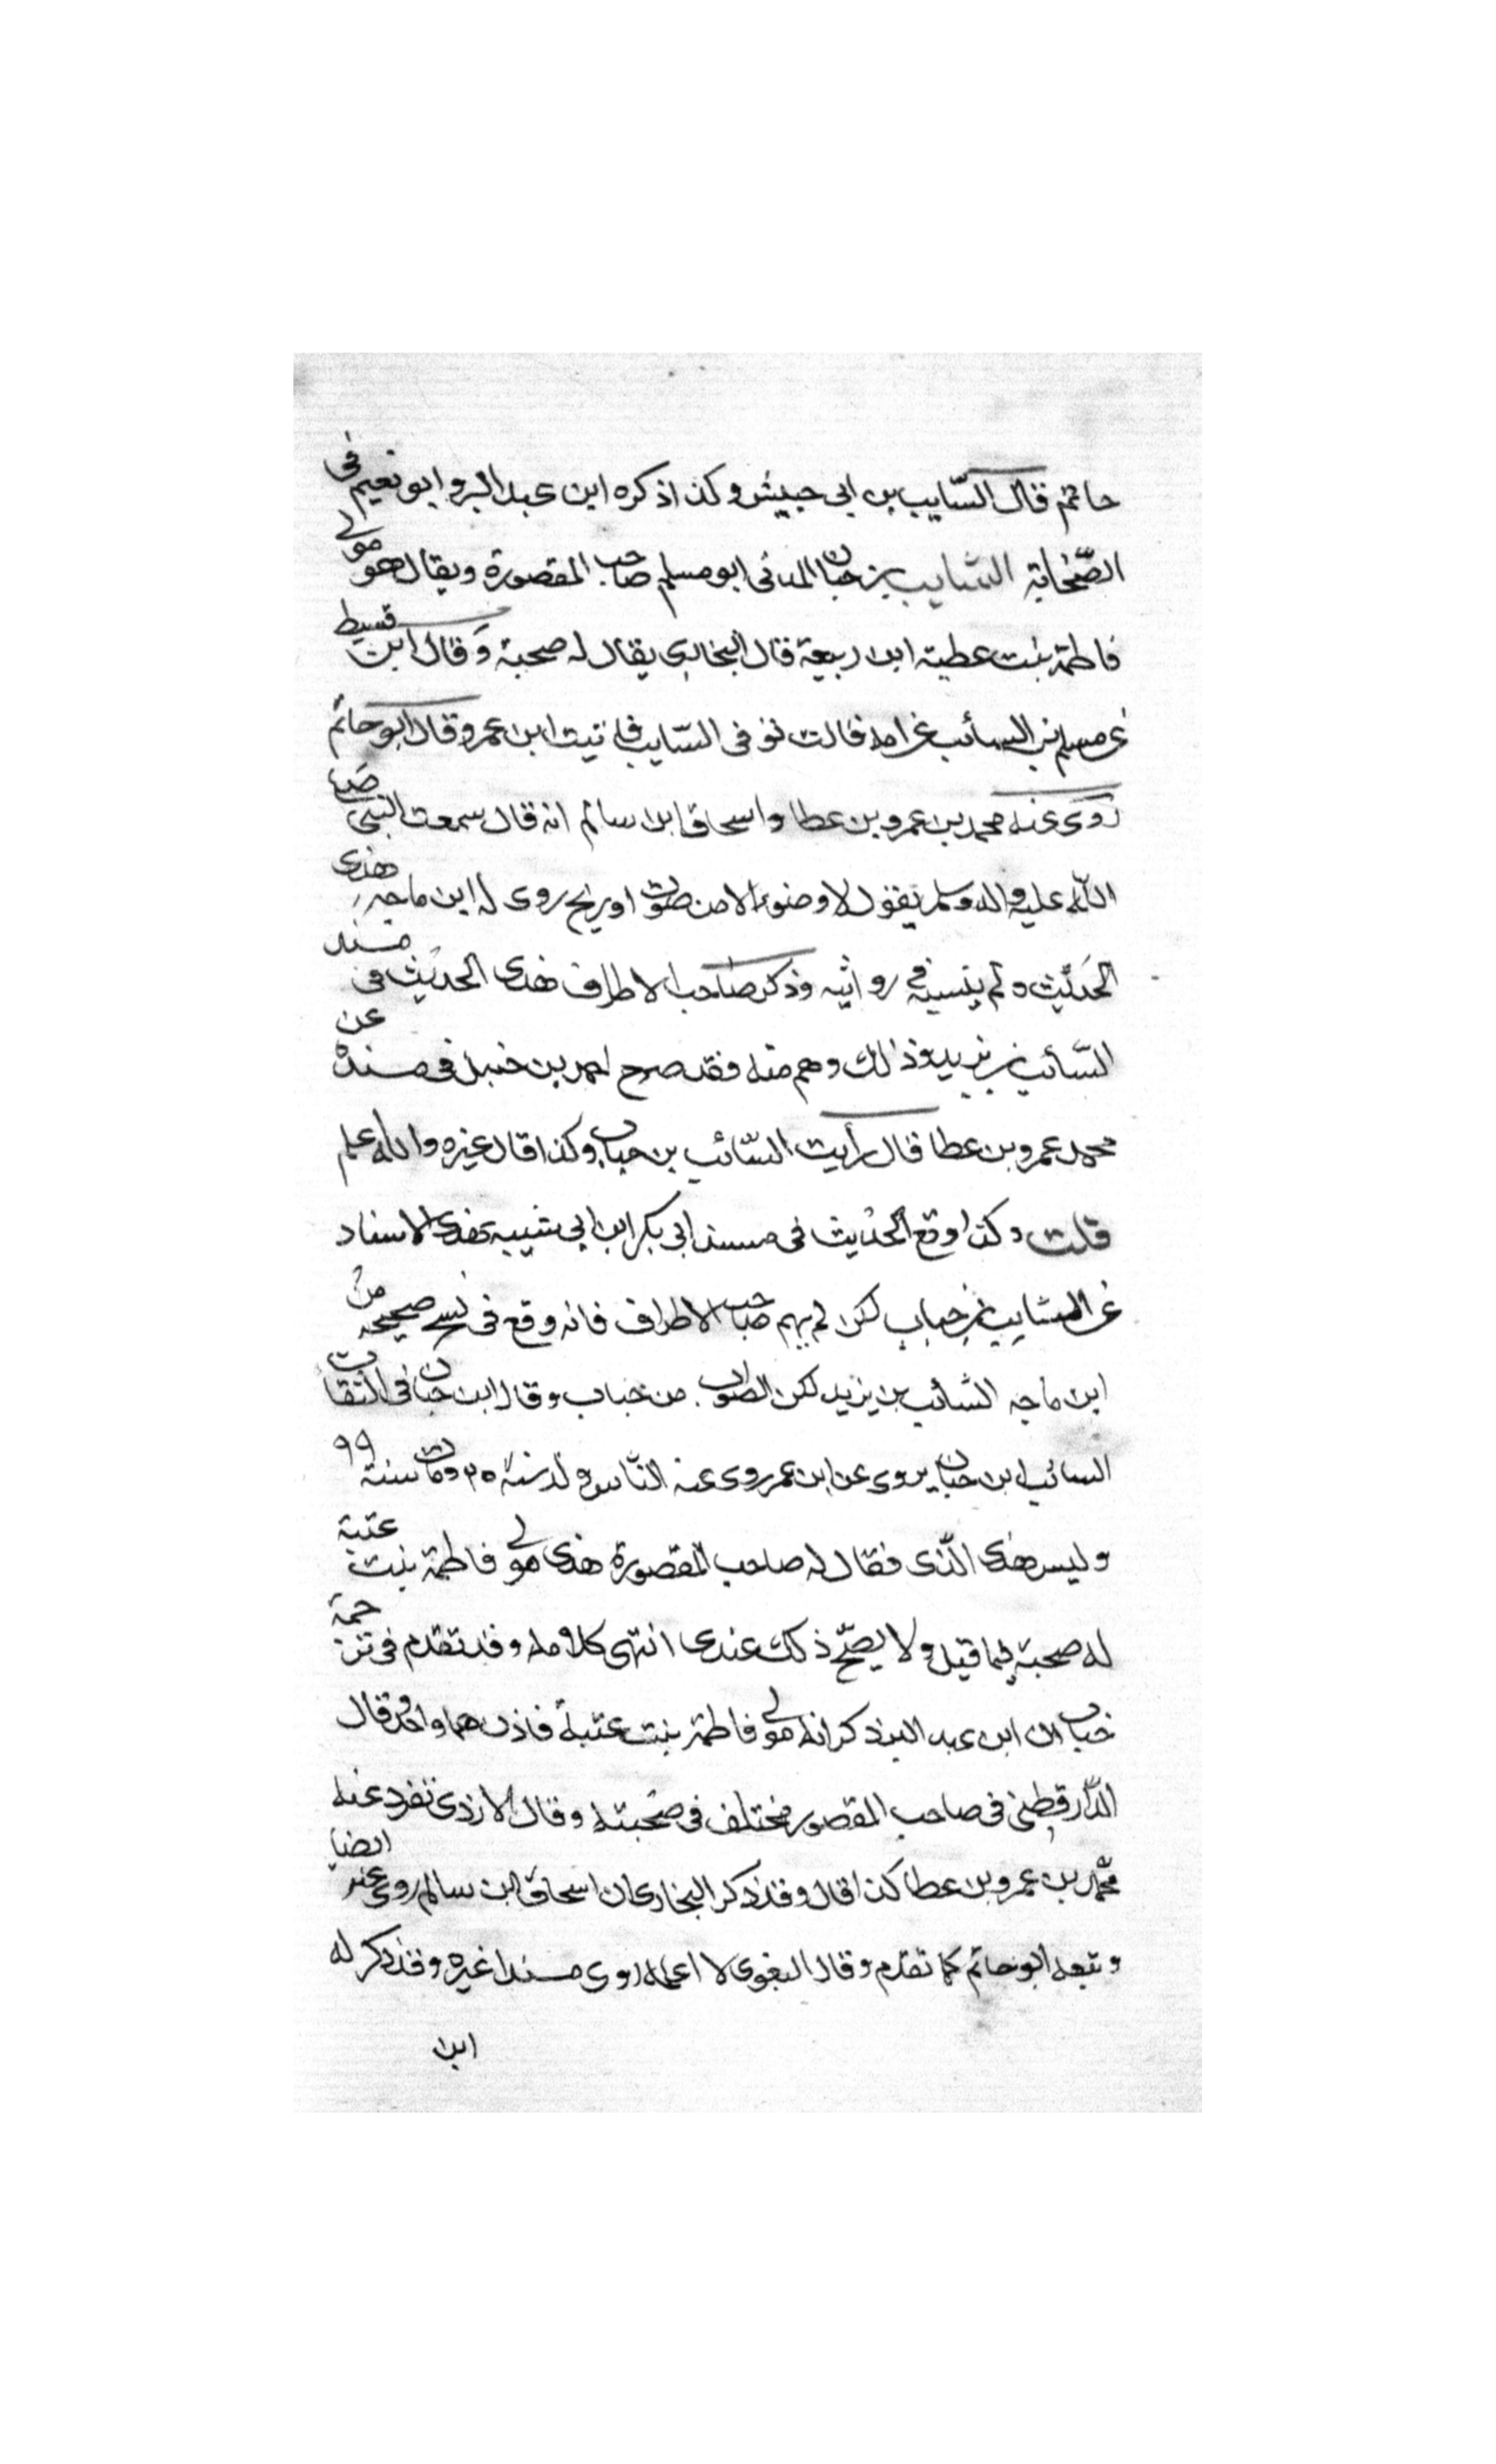 حاتم قال السّايب بن ابى حبيش وكذا ذكره ابن عبد البر وابو نعيم فى
الصّحابة السّايب بن خبان المدنى ابو مسلم صاحب المقصورة ويقال هو مولى
فاطمة بنت عطية ابن ربيعة قال البخارى يقال له صحبة وَقال ابن قسيط
عن مسلم بن السائب عن امه قالت توفى السّايب فاتيت ابن عمر وقال ابو حاتم
روى عنه محمد بن عمرو بن عطا واسحاق ابن سالم انه قال سمعت النبى صلى
الله عليه واله وسلم يقول لا وضوء الا من صوت او ريح روى له ابن ماجه هذى
الحديث ولم ينسبه فى روايته وذكر صاحب الاطراف هذى الحديث فى مسند
السّائب بن يزيد وذلك وهم منه فقد صرح احمد بن حنبل فى مسنده عن
محمد عمرو بن عطا قال رأيت السّائب بن خباب وكذا قال غيره والله اعلم
قلت وكذا وقع الحديث فى مسند ابى بكر ابن ابى شيبه بهذى الاسناد
عن السّايب بن خباب لكن لم يهم صاحب الاطراف فانه وقع فى نسخ صحيحه من
ابن ماجه السّائب بن يزيد لكن الصواب من خباب وقال ابن حبان فى الثقات
السائب ابن خبان يروى عن ابن عمر روى عنه الناس ولد سنة ٢٥ ومات سنة ٩٩
وليس هذى الّذى فقال له صاحب المقصورة هذى مولى فاطمة بنت عتبة
له صحبة فيما قيل ولا يصحّ ذلك عندى انتهى كلامه وقد تقدم فى ترجمة
خباب ان ابن عبد البر ذكر انه مولى فاطمة بنت عتبة فاذن هما واحد وقال
الدّارقطنى فى صاحب المقصور مختلف فى صحبته وقال الازدى تفرد عنه
محمّد بن عمرو بن عطا كذا قال وقد ذكر البخارى ان اسحاق ابن سالم روى عنه ايضا
وتبعه ابو حاتم كما تقدم وقال البغوى لا اعلمه روى مسندا غيره وقد ذكر له
ابن